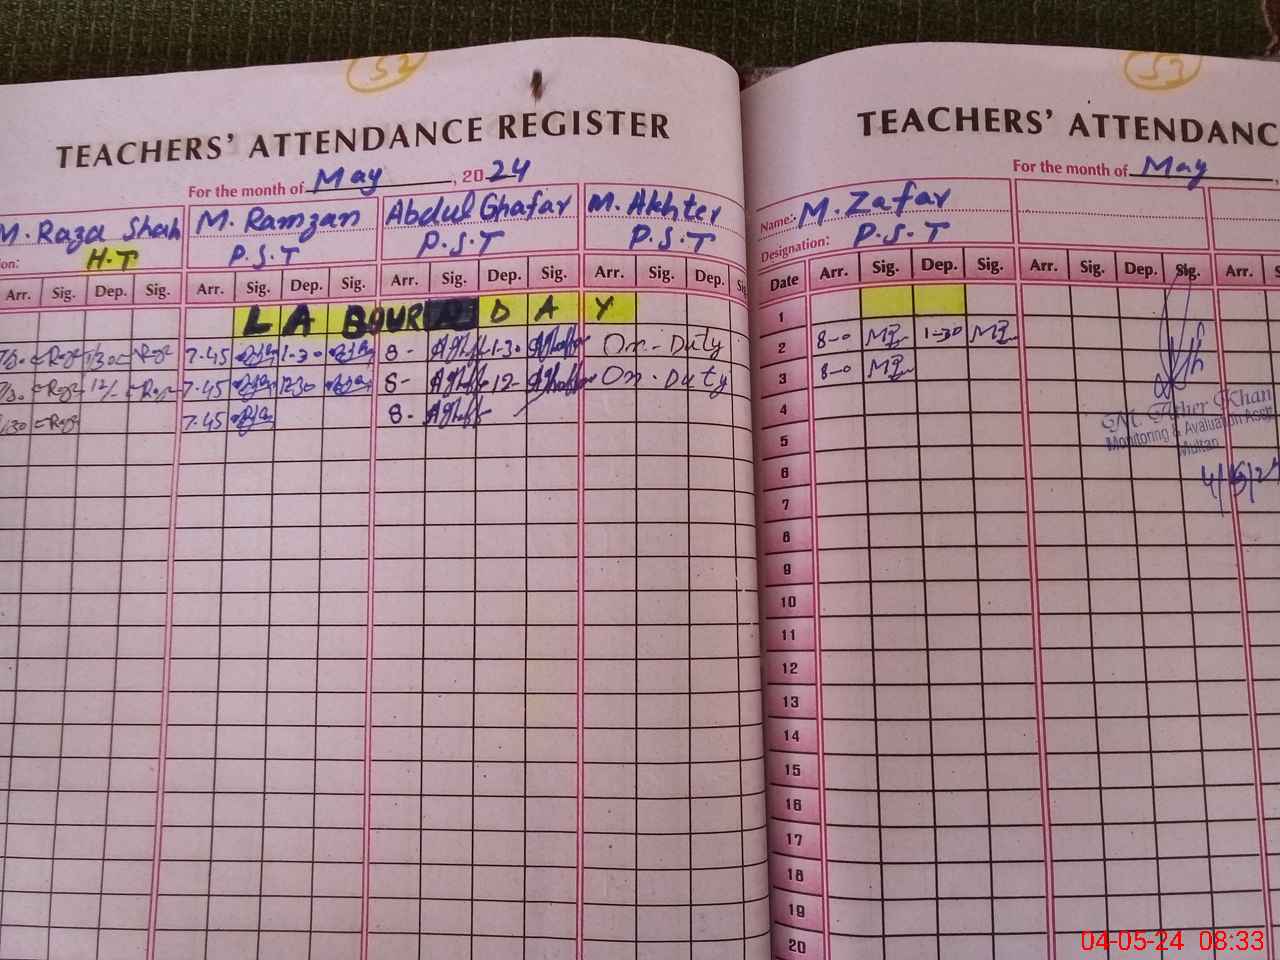 52
TEACHERS' ATTENDANCE REGISTER
For the month of May, 2024
M. Raza Shah M. Ramzan Abdul Ghafar M. Akhter
ion: H.T P.S.T P.S.T P.S.T
Arr. Sig. Dep. Sig. Arr. Sig. Dep. Sig. Arr. Sig. Dep. Sig. Arr. Sig. Dep. Sig.
LABOUR DAY
7.45 1-30 8- 1-30 On-Duty
12/- 7.45 1230 8- 12- On-Duty
7.45 8-
53
TEACHERS' ATTENDANC
For the month of May,
Name:- M. Zafar
Designation: P.S.T
Date Arr. Sig. Dep. Sig. Arr. Sig. Dep. Sig. Arr. S
1
2 8-0 1-30
3 8-0
4
5
6
7
8
9
10
11
12
13
14
15
16
17
18
19
20
M. Ather Khan
Monitoring & Evaluation Assi
Multan
4/5/24
04-05-24 08:33